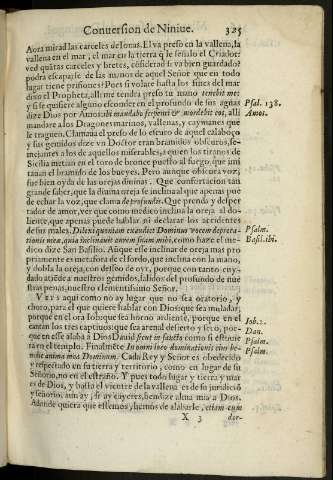 Conuersion de Niniue. 325
Aora mirad las carceles de Ionas. El va preso en la vallena, la
vallena en el mar, el mar en la tierra q̃ le señalo el Criador:
ved quãtas carceles y bretes, cõsiderad si va bien guardado?
podra escaparse de las manos de aquel Señor que en todo
lugar tiene prisiones? Pues si volare hasta los fines del mar
dixo el Propheta, alli me tendra preso tu mano tenebit me:
y si se quisiere alguno esconder en el profundo de sus aguas
dize Dios por Amos: ibi mandabo serpenti & mordebit eos, alli
mandare a los Dragones marinos, vallenas, y caymanes que
le traguen. Clamaua el preso de lo escuro de aquel calaboço
y sus gemidos dize vn Doctor eran bramidos obscuros, se-
mejantes a los de aquellos miserables, a quien los tiranos de
Sicilia metian en el toro de bronce puesto al fuego, que imi
tauan el bramido de los bueyes. Pero aunque obscura voz,
fue bien oyda de las orejas diuinas. Que consertacion tan
grande saber, que la diuina oreja se inclina al que apenas pue
de echar la voz, que clama de profundis. Que prenda y desper
tador de amor, ver que como medico inclina la oreja al do-
liente, que apenas puede hablar, ni declarar los accidentes
de sus males. Dilexi quoniam exaudiet Dominus vocem depreca-
tionis meæ, quia inclinauit aurem suam mihi, como haze el me-
dico dize San Basilio. Aunque esse inclinar de oreja mas pro
priamente es metafora de el sordo, que inclina con la mano,
y dobla la oreja, con desseo de oyr, porque con tanto cuy-
dado atiẽde a nuestros gemidos, salidos del profundo de nue
stras penas, nuestro clementissimo Señor.
Veys aqui como no ay lugar que no sea oratorio, y
choro, para el que quiere hablar con Dios, que sea muladar,
porque en el ora Iob, que sea horno ardiente, porque en el
cantan los tres captiuos: que sea arenal desierto y seco, por-
que en esse alaba a Dios Dauid sicut in sancto como si estuuie
ra en el templo. Finalmẽte In omni loco dominationis eius be-
nedic anima mea Dominum. Cada Rey y Señor es obedecido
y respetado en su tierra y territorio, como en lugar de su
Señorio, no en el estraño. Y pues todo lugar y tierra y mar
es de Dios, y hasta el vientre de la vallena es de su jurisdició
y señorio, aun ay, si ay cayeres, bendize alma mia a Dios.
Adonde quiera que estemos, hemos de alabarle, etiam cum
X 3 dor-
Psal. 138.
Amos.
Psalm.
Basil. ibi.
Iob. 2.
Dan.
Psalm.
Psalm.